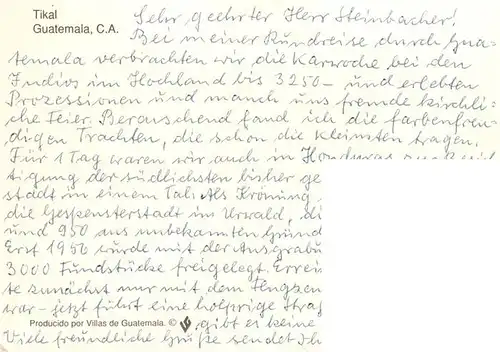 Tikal
Guatemala, C.A.
Sehr geehrter Herr Steinbacher!
Bei meiner Rundreise durch Gua-
temala verbrachten wir die Karwoche bei den
Indios im Hochland bis 3250- und erlebten
Prozessionen und manch uns fremde kirchli-
che Feier. Berauschend fand ich die farbenfreu-
digen Trachten, die schon die Kleinsten tragen.
Für 1 Tag waren wir auch in Honduras
tigung der südlichsten bisher ge
stadt in einem Tal. Als Krönung
die Gespensterstadt im Urwald, di
und 950 aus unbekannten Gründ
Erst 1956 wurde mit der Ausgrabu
3000 Fundstücke freigelegt. Errei
te zunächst nur mit dem Flugzeu
war - jetzt führt eine holprige Straß
Producido por Villas de Guatemala. © gibt es keine
Viele freundliche Grüße sendet Ih